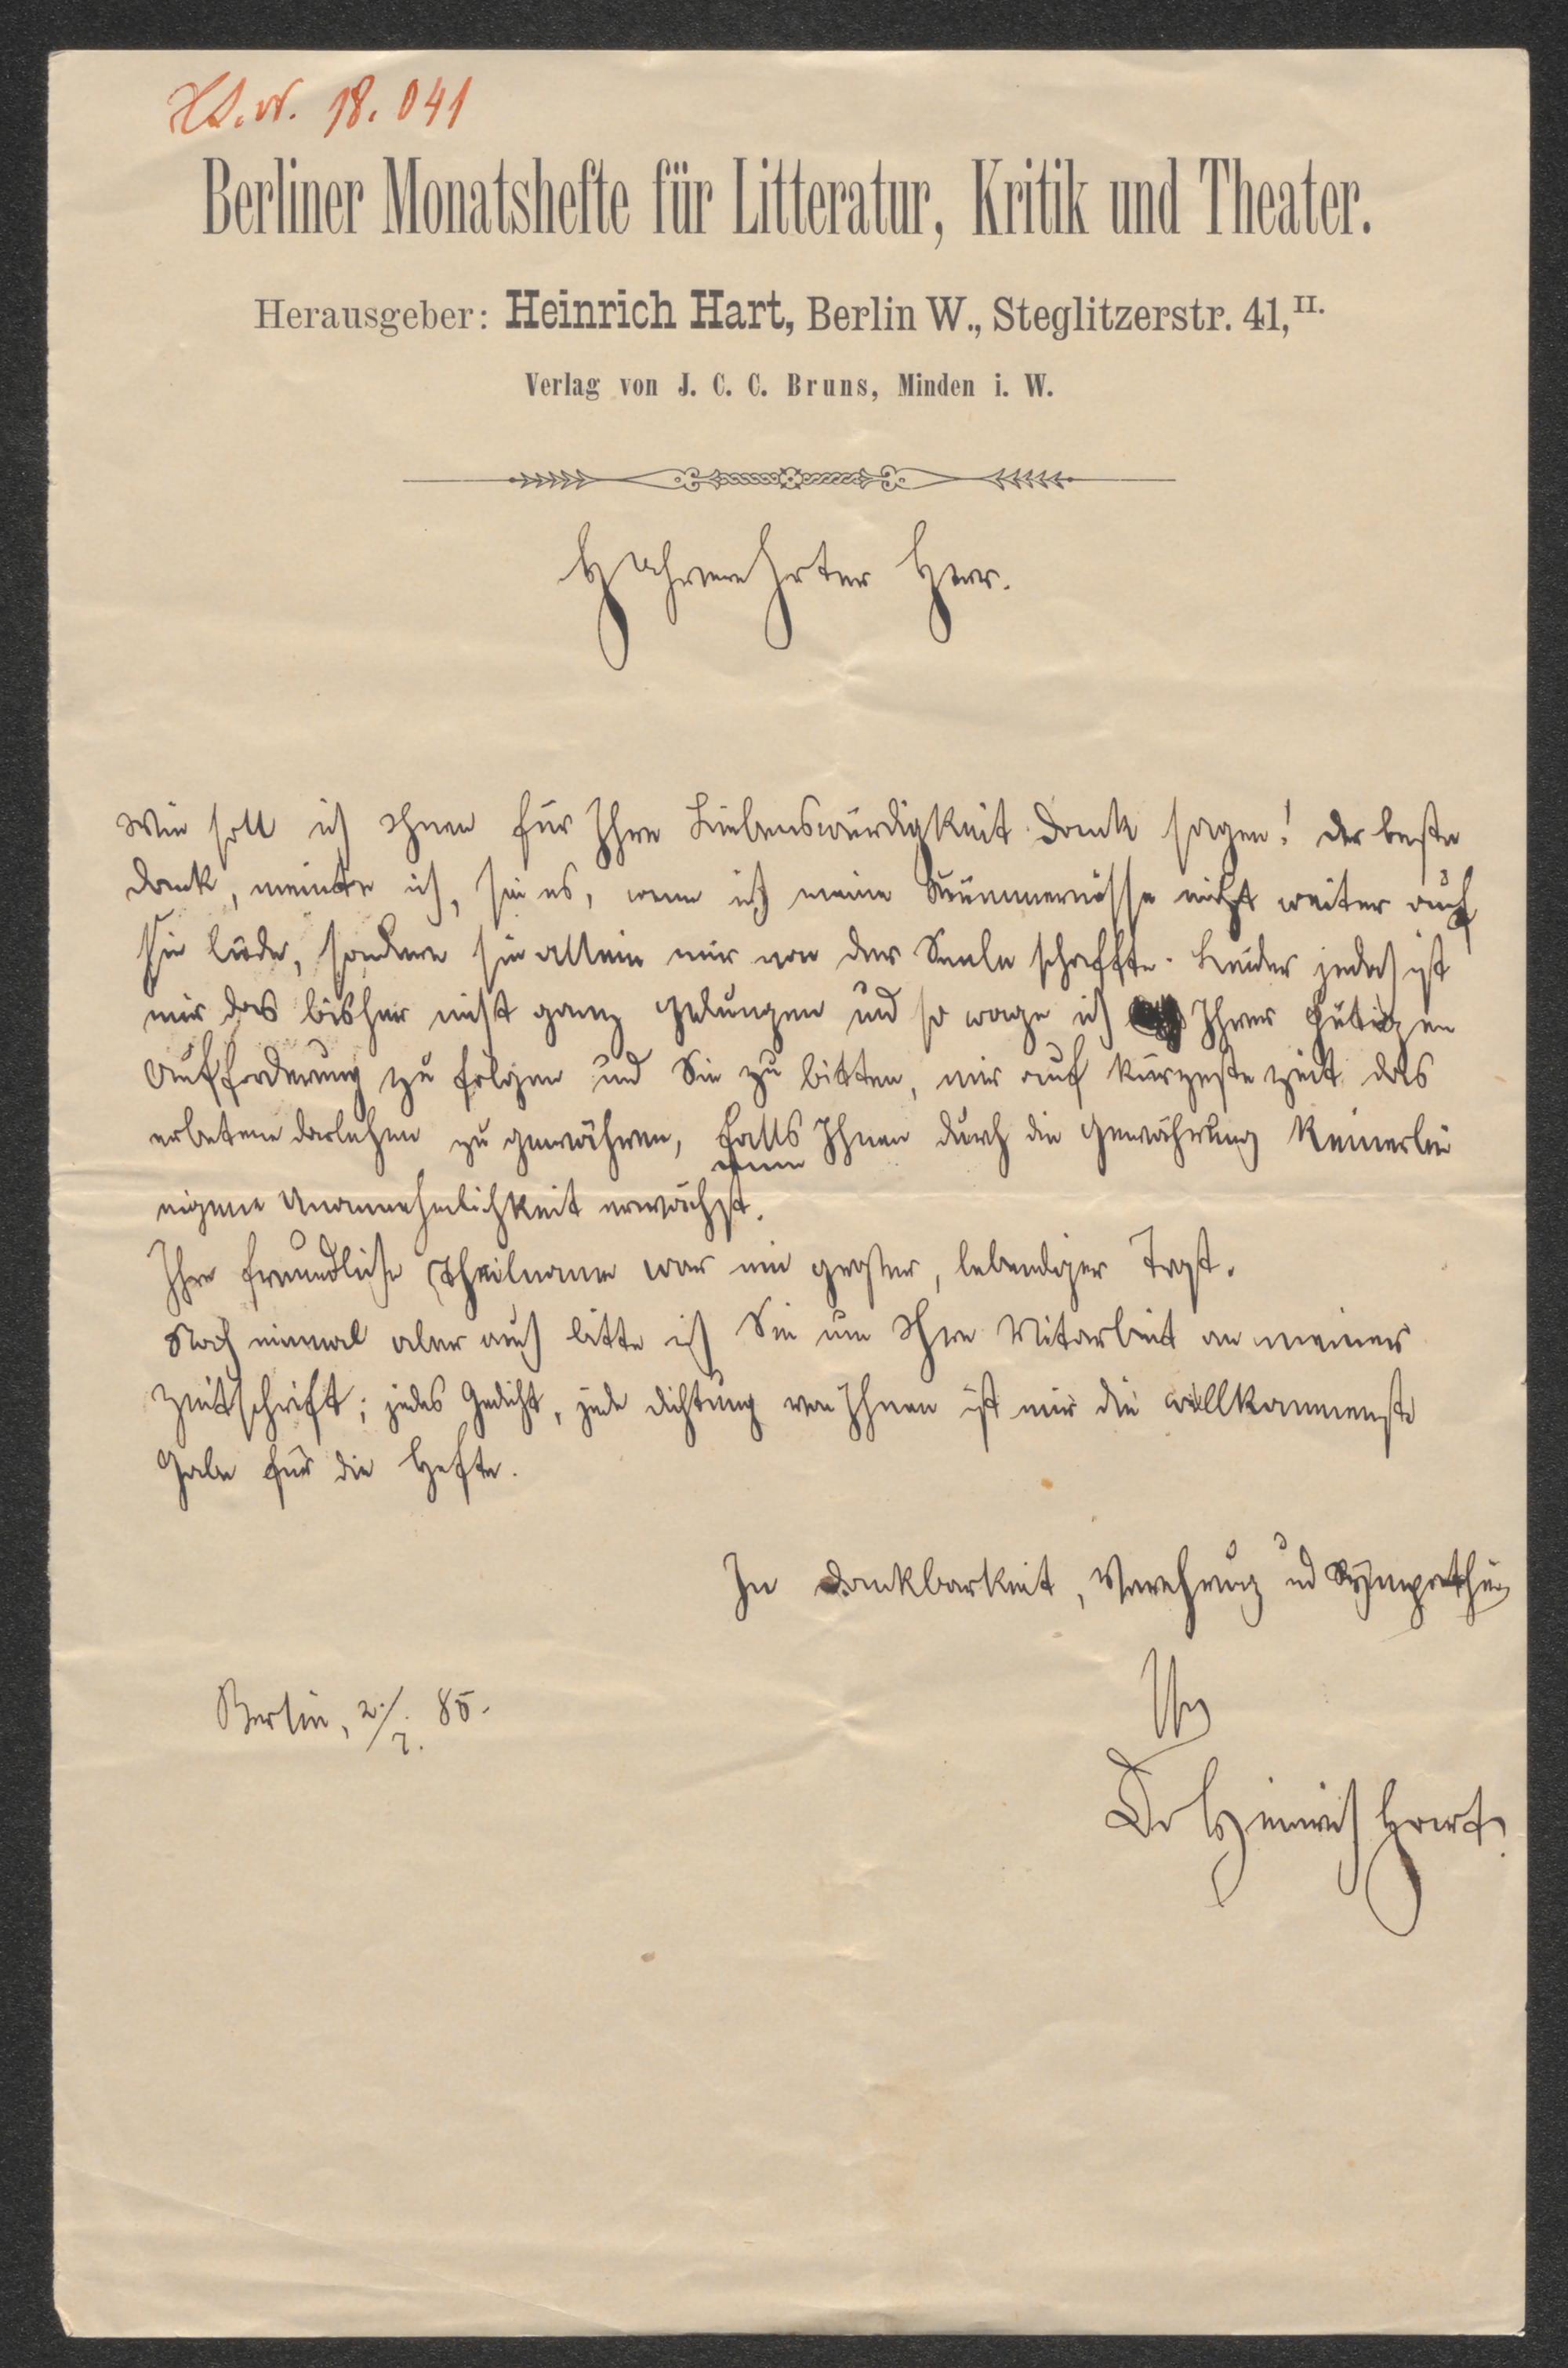 H.S.N. 18.041
Berliner Monatshefte für Litteratur, Kritik und Theater.
Herausgeber: Heinrich Hart, Berlin W., Steglitzerstr. 41, II.
Verlag von J. C. C. Bruns, Minden i. W.
Hochverehrter Herr.
Wie soll ich Ihnen für Ihre Liebenswürdigkeit Dank sagen! Der beste
Dank, meinte ich, sei es, wenn ich meine Kümmernisse nicht weiter auf
Sie lüde, sondern sie allein mir von der Seele schaffte. Leider jedoch ist
mir das bisher nicht ganz gelungen und so wage ich Ihrer gütigen
Aufforderung zu folgen und Sie zu bitten, mir auf kürzeste Zeit das
erbetene Darlehen zu gewähren, falls Ihnen durch die Gewährung keinerlei
eigene Unannehmlichkeit erwächst.
Ihre freundliche Theilname war mir großer, lebendiger Trost.
Noch einmal aber auch bitte ich Sie um Ihre Mitarbeit an meiner
Zeitschrift; jedes Gedicht, jede Dichtung von Ihnen ist mir die willkommenste
Gabe für die Hefte.
In Dankbarkeit, Verehrung und Sympathie
Ihr
Berlin, 2./7. 85.
Dr Heinrich Hart.